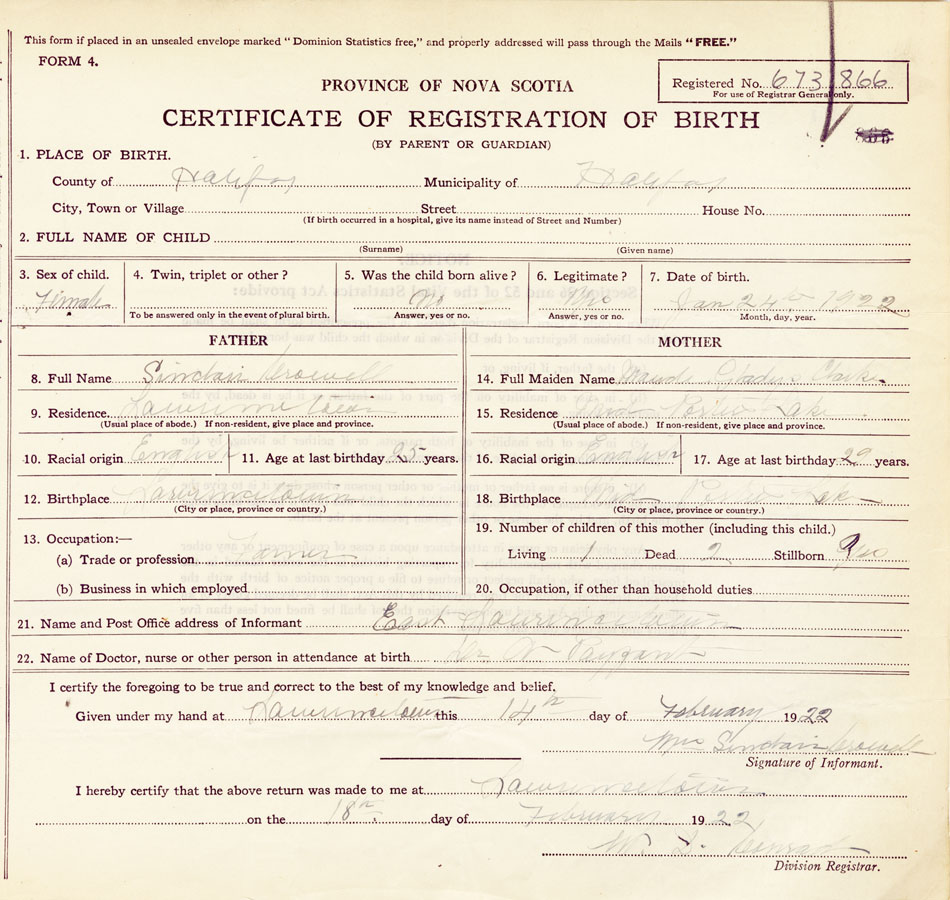 This form if placed in an unsealed envelope marked "Dominion Statistics free," and properly addressed will pass through the Mails "FREE."
FORM 4.
Registered No. 673866
For use of Registrar General only.
PROVINCE OF NOVA SCOTIA
CERTIFICATE OF REGISTRATION OF BIRTH
(BY PARENT OR GUARDIAN)
1. PLACE OF BIRTH.
County of Halifax Municipality of Halifax
City, Town or Village Street House No.
(If birth occurred in a hospital, give its name instead of Street and Number)
2. FULL NAME OF CHILD
(Surname) (Given name)
3. Sex of child. 4. Twin, triplet or other? 5. Was the child born alive? 6. Legitimate? 7. Date of birth.
Female No Yes Jan 24th 1922
To be answered only in the event of plural birth. Answer, yes or no. Answer, yes or no. Month, day, year.
FATHER
8. Full Name Sinclair Crowell
9. Residence. Lawrencetown
(Usual place of abode.) If non-resident, give place and province.
10. Racial origin English 11. Age at last birthday 25 years.
12. Birthplace Lawrencetown
(City or place, province or country.)
13. Occupation:—
(a) Trade or profession Farmer
(b) Business in which employed
MOTHER
14. Full Maiden Name Maude Gladys Clarke
15. Residence West Porters Lake
(Usual place of abode.) If non-resident, give place and province.
16. Racial origin English 17. Age at last birthday 29 years.
18. Birthplace West Porters Lake
(City or place, province or country.)
19. Number of children of this mother (including this child.)
Living 1 Dead 2 Stillborn
20. Occupation, if other than household duties
21. Name and Post Office address of Informant East Lawrencetown
22. Name of Doctor, nurse or other person in attendance at birth Dr. Payzant
I certify the foregoing to be true and correct to the best of my knowledge and belief.
Given under my hand at Lawrencetown this 14th day of February 1922
Mrs Sinclair Crowell
Signature of Informant.
I hereby certify that the above return was made to me at Lawrencetown
on the 18th day of February 1922
Conrad
Division Registrar.